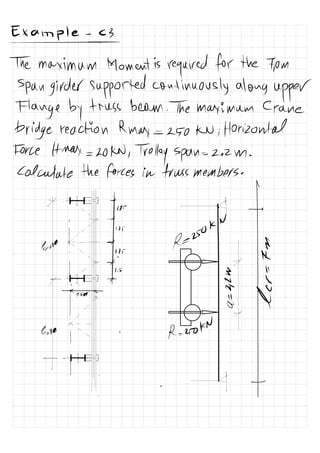 Example - C3
The maximum Moment is required for the 7,0m
span girder supported continuously along upper
Flange by truss beam. The maximum Crane
bridge reaction Rmax = 250 KN, Horizontal
Force Hmax = 20 KN, Trolley span = 2.2 m.
Calculate the forces in truss members.
1.5
R=250 KN
R=250 KN
a=2,2m
lcr=7m